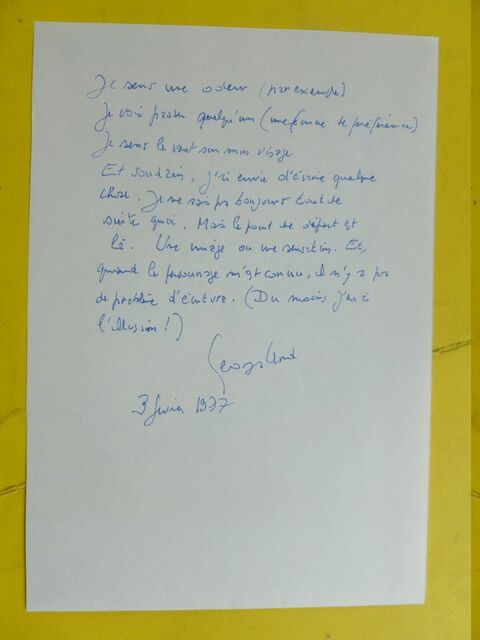 Je sens une odeur (par exemple)
Je vois passer quelqu'un (une femme de préférence)
Je sens le vent sur mon visage
Et soudain, j'ai envie d'écrire quelque
chose. Je ne sais pas toujours tout de
suite quoi. Mais le point de départ est
là. Une image ou une sensation. Et,
quand le personnage m'est connu, il n'y a pas
de problème d'écriture. (Du moins j'en ai
l'illusion !)
3 février 1977